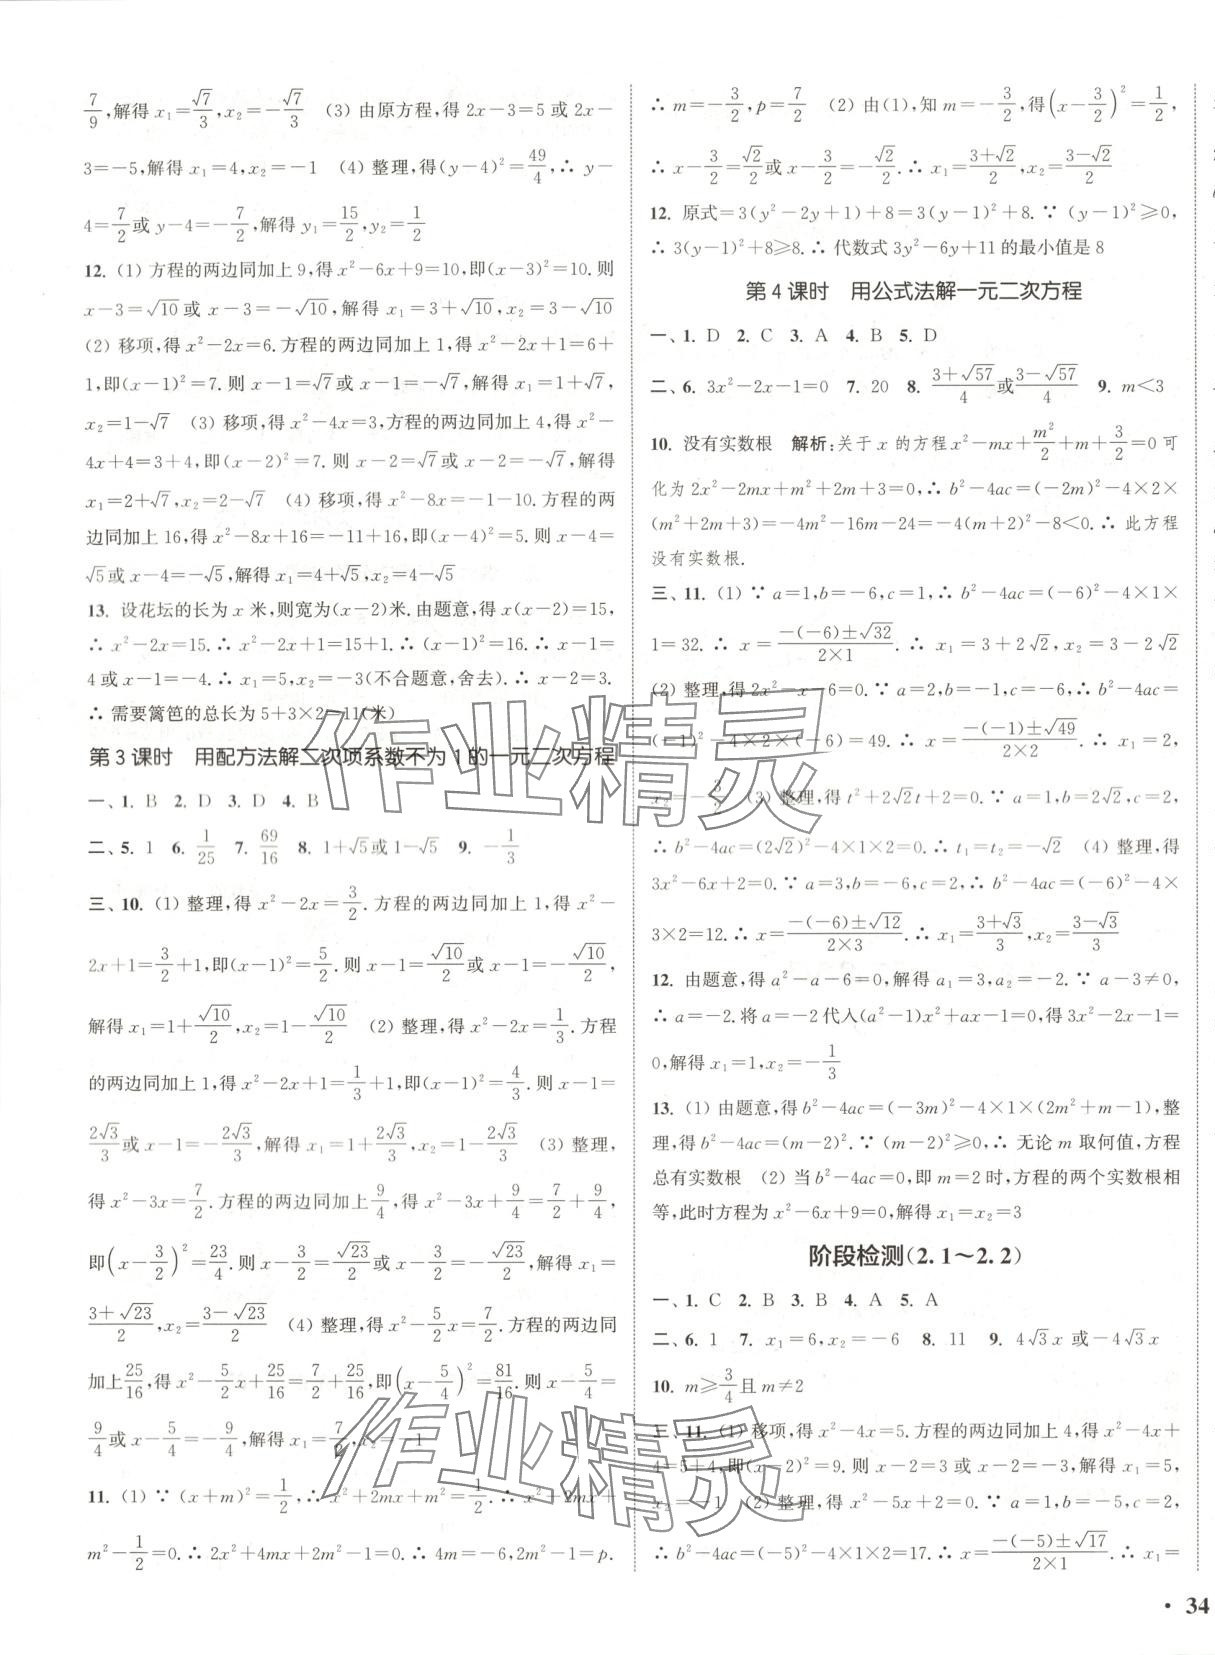 7/9,解得 x₁=√7/3,x₂=-√7/3 (3) 由原方程,得 2x-3=5 或 2x-
3=-5,解得 x₁=4,x₂=-1 (4) 整理,得(y-4)²=49/4,∴ y-
4=7/2或 y-4=-7/2,解得 y₁=15/2,y₂=1/2
12. (1) 方程的两边同加上 9,得 x²-6x+9=10,即(x-3)²=10. 则
x-3=√10或 x-3=-√10,解得 x₁=3+√10,x₂=3-√10
(2) 移项,得 x²-2x=6. 方程的两边同加上 1,得 x²-2x+1=6+
1,即(x-1)²=7. 则 x-1=√7或 x-1=-√7,解得 x₁=1+√7,
x₂=1-√7 (3) 移项,得 x²-4x=3,方程的两边同加上 4,得 x²-
4x+4=3+4,即(x-2)²=7. 则 x-2=√7或 x-2=-√7,解得
x₁=2+√7,x₂=2-√7 (4) 移项,得 x²-8x=-1-10. 方程的两
边同加上 16,得 x²-8x+16=-11+16,即(x-4)²=5. 则 x-4=
√5或 x-4=-√5,解得 x₁=4+√5,x₂=4-√5
13. 设花坛的长为 x 米,则宽为(x-2)米. 由题意,得 x(x-2)=15,
∴ x²-2x=15. ∴ x²-2x+1=15+1. ∴ (x-1)²=16. ∴ x-1=
4或 x-1=-4. ∴ x₁=5,x₂=-3(不合题意,舍去). ∴ x-2=3.
∴ 需要篱笆的总长为 5+3×2=11(米)
第 3 课时 用配方法解二次项系数不为 1 的一元二次方程
一、1. B 2. D 3. D 4. B
二、5. 1 6. 1/25 7. 69/16 8. 1+√5或 1-√5 9. -1/3
三、10. (1) 整理,得 x²-2x=3/2. 方程的两边同加上 1,得 x²-
2x+1=3/2+1,即(x-1)²=5/2. 则 x-1=√10/2或 x-1=-√10/2,
解得 x₁=1+√10/2,x₂=1-√10/2 (2) 整理,得 x²-2x=1/3. 方程
的两边同加上 1,得 x²-2x+1=1/3+1,即(x-1)²=4/3. 则 x-1=
2√3/3或 x-1=-2√3/3,解得 x₁=1+2√3/3,x₂=1-2√3/3 (3) 整理,
得 x²-3x=7/2. 方程的两边同加上9/4,得 x²-3x+9/4=7/2+9/4,
即(x-3/2)²=23/4. 则 x-3/2=√23/2或 x-3/2=-√23/2,解得 x₁=
3+√23/2,x₂=3-√23/2 (4) 整理,得 x²-5/2x=7/2. 方程的两边同
加上25/16,得 x²-5/2x+25/16=7/2+25/16,即(x-5/4)²=81/16. 则 x-5/4=
9/4或 x-5/4=-9/4,解得 x₁=7/2,x₂=-1
11. (1) ∵ (x+m)²=1/2,∴ x²+2mx+m²=1/2. ∴ x²+2mx+
m²-1/2=0. ∴ 2x²+4mx+2m²-1=0. ∴ 4m=-6,2m²-1=p.
∴ m=-3/2,p=7/2 (2) 由(1),知 m=-3/2,得(x-3/2)²=1/2,
∴ x-3/2=√2/2或 x-3/2=-√2/2. ∴ x₁=3+√2/2,x₂=3-√2/2
12. 原式=3(y²-2y+1)+8=3(y-1)²+8. ∵ (y-1)²≥0,
∴ 3(y-1)²+8≥8. ∴ 代数式 3y²-6y+11 的最小值是 8
第 4 课时 用公式法解一元二次方程
一、1. D 2. C 3. A 4. B 5. D
二、6. 3x²-2x-1=0 7. 20 8. 3+√57/4或3-√57/4 9. m<3
10. 没有实数根 解析:关于 x 的方程 x²-mx+m²/2+m+3/2=0 可
化为 2x²-2mx+m²+2m+3=0,∴ b²-4ac=(-2m)²-4×2×
(m²+2m+3)=-4m²-16m-24=-4(m+2)²-8<0. ∴ 此方程
没有实数根.
三、11. (1) ∵ a=1,b=-6,c=1,∴ b²-4ac=(-6)²-4×1×
1=32. ∴ x=-(-6)±√32/2×1. ∴ x₁=3+2√2,x₂=3-2√2
(2) 整理,得 2x²-x-6=0. ∵ a=2,b=-1,c=-6,∴ b²-4ac=
(-1)²-4×2×(-6)=49. ∴ x=-(-1)±√49/2×2. ∴ x₁=2,
x₂=-3/2 (3) 整理,得 t²+2√2t+2=0. ∵ a=1,b=2√2,c=2,
∴ b²-4ac=(2√2)²-4×1×2=0. ∴ t₁=t₂=-√2 (4) 整理,得
3x²-6x+2=0. ∵ a=3,b=-6,c=2,∴ b²-4ac=(-6)²-4×
3×2=12. ∴ x=-(-6)±√12/2×3. ∴ x₁=3+√3/3,x₂=3-√3/3
12. 由题意,得 a²-a-6=0,解得 a₁=3,a₂=-2. ∵ a-3≠0,
∴ a=-2. 将 a=-2 代入(a²-1)x²+ax-1=0,得 3x²-2x-1=
0,解得 x₁=1,x₂=-1/3
13. (1) 由题意,得 b²-4ac=(-3m)²-4×1×(2m²+m-1),整
理,得 b²-4ac=(m-2)². ∵ (m-2)²≥0,∴ 无论 m 取何值,方程
总有实数根 (2) 当 b²-4ac=0,即 m=2 时,方程的两个实数根相
等,此时方程为 x²-6x+9=0,解得 x₁=x₂=3
阶段检测(2.1~2.2)
一、1. C 2. B 3. B 4. A 5. A
二、6. 1 7. x₁=6,x₂=-6 8. 11 9. 4√3x 或-4√3x
10. m≥3/4且 m≠2
三、11. (1) 移项,得 x²-4x=5. 方程的两边同加上 4,得 x²-4x+
4=5+4,即(x-2)²=9. 则 x-2=3 或 x-2=-3,解得 x₁=5,
x₂=-1 (2) 整理,得 x²-5x+2=0. ∵ a=1,b=-5,c=2,
∴ b²-4ac=(-5)²-4×1×2=17. ∴ x=-(-5)±√17/2×1. ∴ x₁=
· 34
作业精灵
作业精灵